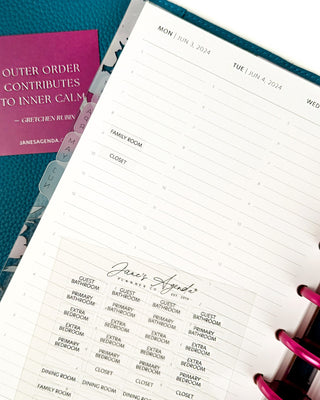 OUTER ORDER
CONTRIBUTES
TO INNER CALM
— GRETCHEN RUBIN
JANESAGENDA.C
MON | JUN 3, 2024
TUE | JUN 4, 2024
WED
FAMILY ROOM
CLOSET
Jane's Agenda
EST. 2014
GUEST BATHROOM
GUEST BATHROOM
GUEST BATHROOM
GUEST BATHROOM
PRIMARY BATHROOM
PRIMARY BATHROOM
PRIMARY BATHROOM
PRIMARY BATHROOM
EXTRA BEDROOM
EXTRA BEDROOM
EXTRA BEDROOM
EXTRA BEDROOM
EXTRA BEDROOM
EXTRA BEDROOM
EXTRA BEDROOM
EXTRA BEDROOM
PRIMARY BEDROOM
PRIMARY BEDROOM
PRIMARY BEDROOM
PRIMARY BEDROOM
CLOSET
CLOSET
CLOSET
CLOSET
DINING ROOM
DINING ROOM
DINING ROOM
DINING ROOM
FAMILY ROOM